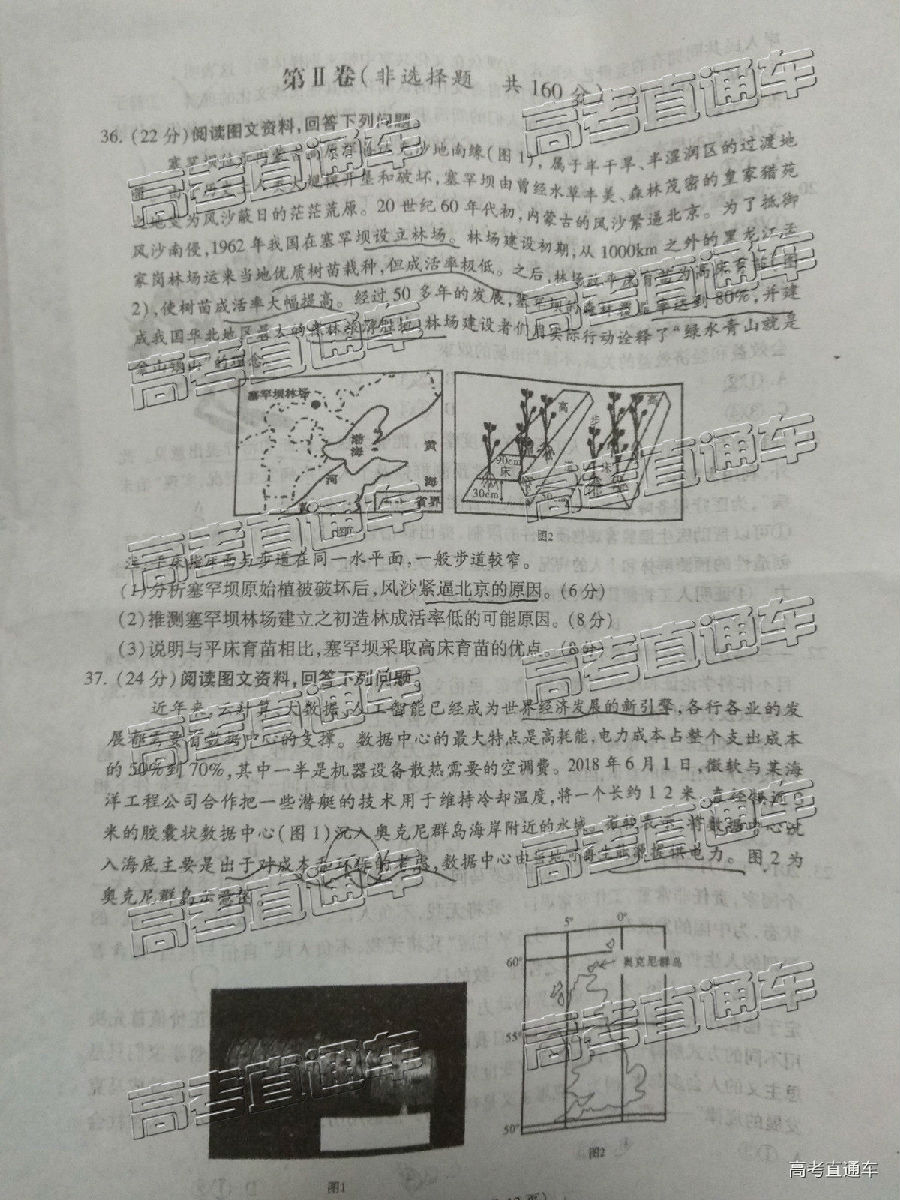 第Ⅱ卷(非选择题 共160分)
36.(22分)阅读图文资料,回答下列问题。
塞罕坝位于内蒙古高原浑善达克沙地南缘(图1),属于半干旱、半湿润区的过渡地
人类大规模开垦和破坏,塞罕坝由曾经水草丰美、森林茂密的皇家猎苑
变为风沙蔽日的茫茫荒原。20世纪60年代初,内蒙古的风沙紧逼北京。为了抵御
风沙南侵,1962年我国在塞罕坝设立林场。林场建设初期,从1000km之外的黑龙江
家岗林场运来当地优质树苗栽种,但成活率极低。之后,林场改平床育苗为高床育苗(图
2),使树苗成活率大幅提高。经过50多年的发展,塞罕坝的森林覆盖率达到80%,并建
成我国华北地区最大的森林,林场建设者们用实际行动诠释了“绿水青山就是
金山银山”的理念。
塞罕坝林场
渤海
黄
海
河
省界
图1
高
步
高
90cm
床
床
30cm
图2
注:平床指床面与步道在同一水平面,一般步道较窄。
(1)分析塞罕坝原始植被破坏后,风沙紧逼北京的原因。(6分)
(2)推测塞罕坝林场建立之初造林成活率低的可能原因。(8分)
(3)说明与平床育苗相比,塞罕坝采取高床育苗的优点。(8分)
37.(24分)阅读图文资料,回答下列问题。
近年来,云计算、大数据、人工智能已经成为世界经济发展的新引擎,各行各业的发
展都需要有数据中心的支撑。数据中心的最大特点是高耗能,电力成本占整个支出成本
的50%到70%,其中一半是机器设备散热需要的空调费。2018年6月1日,微软与某海
洋工程公司合作把一些潜艇的技术用于维持冷却温度,将一个长约12米、直径接近
米的胶囊状数据中心(图1)沉入奥克尼群岛海岸附近的水域。微软表示,将数据中心沉
入海底主要是出于对成本和环保的考虑,数据中心由当地可再生能源提供电力。图2为
奥克尼群岛示意图。
图1
5°
0°
60°
奥克尼群岛
55°
50°
图2
高考直通车